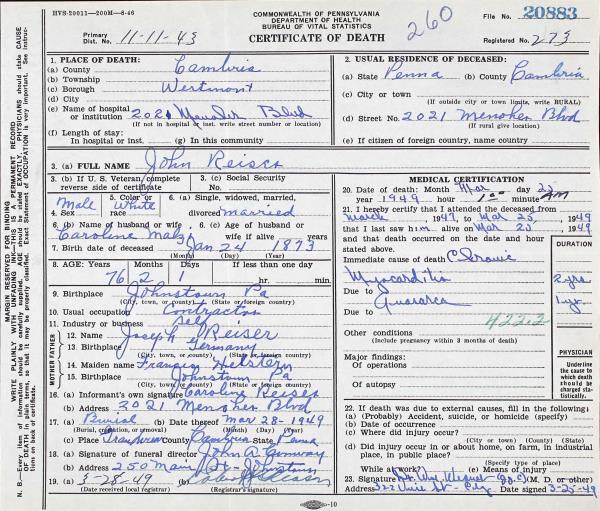 HVS-20011—200M—8-46
COMMONWEALTH OF PENNSYLVANIA
DEPARTMENT OF HEALTH
BUREAU OF VITAL STATISTICS
CERTIFICATE OF DEATH
260
File No. 20883
Primary Dist. No. 11-11-43
Registered No. 273
MARGIN RESERVED FOR BINDING
WRITE PLAINLY WITH UNFADING INK—THIS IS A PERMANENT RECORD
1. PLACE OF DEATH:
(a) County Cambria
(b) Township
(c) Borough Westmont
(d) City
(e) Name of hospital or institution 2021 Blvd
(If not in hospital or inst. write street number or location)
(f) Length of stay:
In hospital or inst. (g) In this community
2. USUAL RESIDENCE OF DECEASED:
(a) State Penna (b) County Cambria
(c) City or town
(If outside city or town limits, write RURAL)
(d) Street No. 2021 Menoher Blvd
(If rural give location)
(e) If citizen of foreign country, name country
3. (a) FULL NAME John Reiser
3. (b) If U. S. Veteran, complete reverse side of certificate
3. (c) Social Security No.
4. Sex Male
5. Color or race White
6. (a) Single, widowed, married, divorced married
6. (b) Name of husband or wife Caroline
6. (c) Age of husband or wife if alive years
7. Birth date of deceased Jan 24 1873
(Month) (Day) (Year)
8. AGE: Years Months Days If less than one day
76 2 1 hr. min.
9. Birthplace Johnstown Pa
(City, town, or county) (State or foreign country)
10. Usual occupation Contractor
11. Industry or business Self
FATHER
12. Name Joseph Reiser
13. Birthplace Germany
(City, town, or county) (State or foreign country)
MOTHER
14. Maiden name
15. Birthplace Johnstown Pa
(City, town, or county) (State or foreign country)
16. (a) Informant's own signature Caroline Reiser
(b) Address 2021 Menoher Blvd
17. (a) Burial (b) Date thereof Mar 28-1949
(Burial, cremation, or removal) (Month) (Day) (Year)
(c) Place Grandview County Cambria State Penna
18. (a) Signature of funeral director John A
(b) Address 250 Main St - Johnstown
19. (a) 3-28-49 (b)
(Date received local registrar) (Registrar's signature)
MEDICAL CERTIFICATION
20. Date of death: Month Mar day
year 1949 hour 1:00 minute AM
21. I hereby certify that I attended the deceased from
March 1947, to Mar 25, 1949
that I last saw him alive on Mar , 1949
and that death occurred on the date and hour stated above.
DURATION
Immediate cause of death Chronic
Myocarditis 2 yrs
Due to
Anasarca 1 yr.
Due to
422.2
Other conditions
(Include pregnancy within 3 months of death)
Major findings:
Of operations
Of autopsy
PHYSICIAN
Underline the cause to which death should be charged statistically.
22. If death was due to external causes, fill in the following:
(a) (Probably) Accident, suicide, or homicide (specify)
(b) Date of occurrence
(c) Where did injury occur?
(City or town) (County) (State)
(d) Did injury occur in or about home, on farm, in industrial place, in public place?
(Specify type of place)
While at work? (e) Means of injury
23. Signature (M. D. or other)
Address St - Date signed 3-25-49
—10